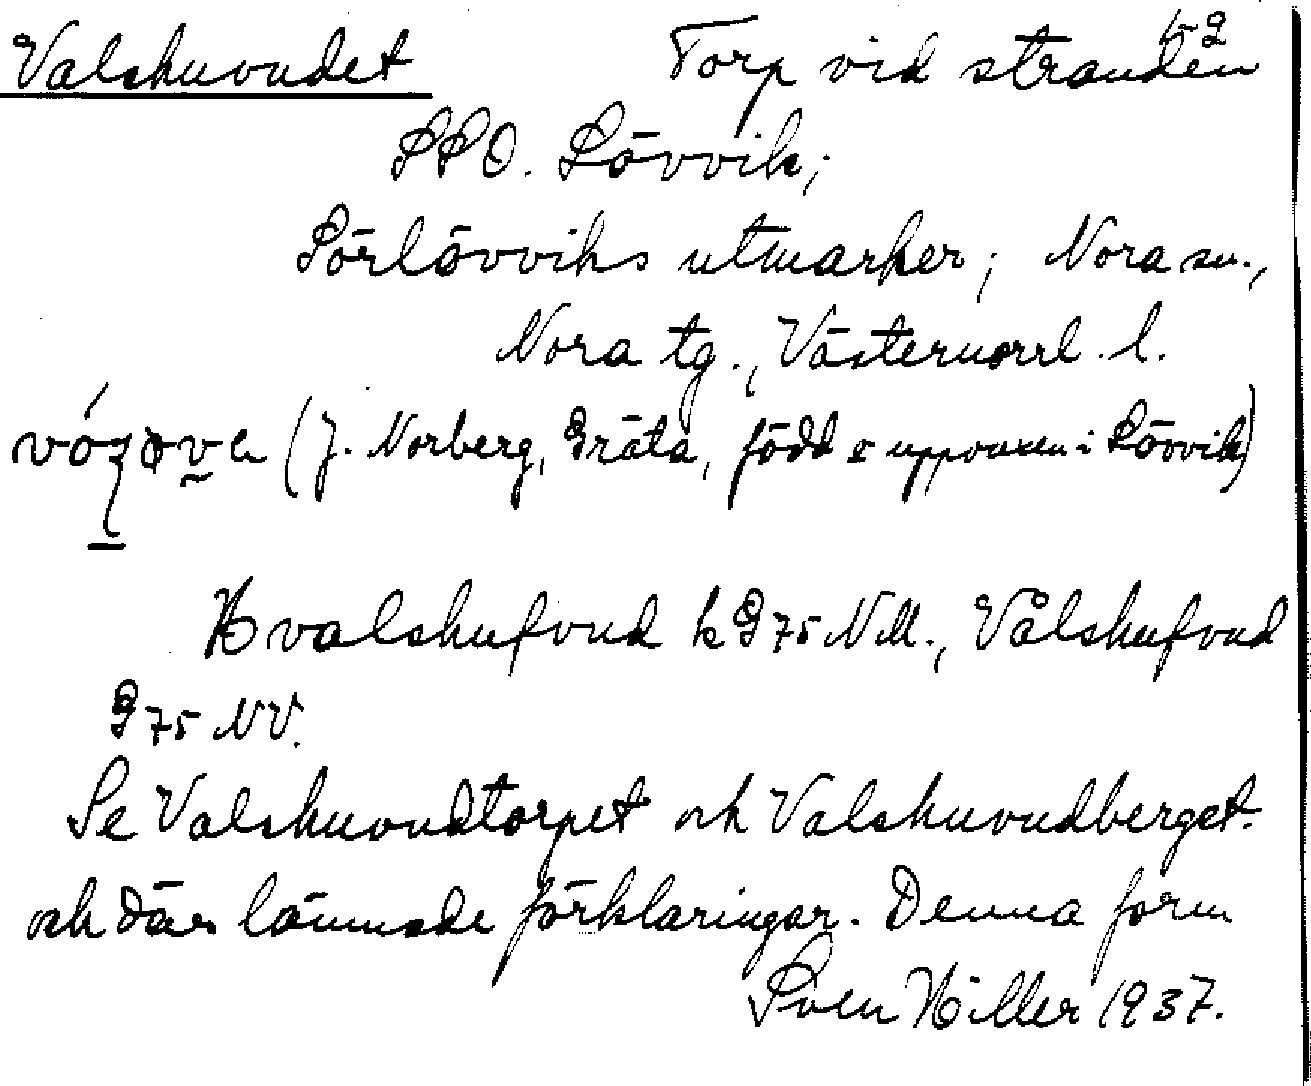 Valshuvudet Torp vid stranden
SSO. Lövvik;
Sörlövviks utmarker; Nora sn.,
Nora tg., Västernorrl. l.
(J. Norberg, Gräta, född o uppvuxen i Lövvik)
Hvalshufvud k G 75 NM., Vålshufvud
G 75 NV.
Se Valshuvudtorpet och Valshuvudberget.
och där lämnade förklaringar. Denna form
Sven Hiller 1937.